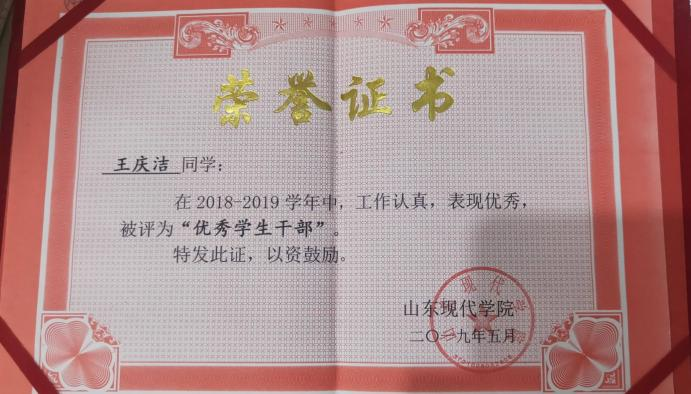 荣誉证书
王庆洁 同学：
在 2018-2019 学年中，工作认真，表现优秀，
被评为“优秀学生干部”。
特发此证，以资鼓励。
山东现代学院
二〇一九年五月